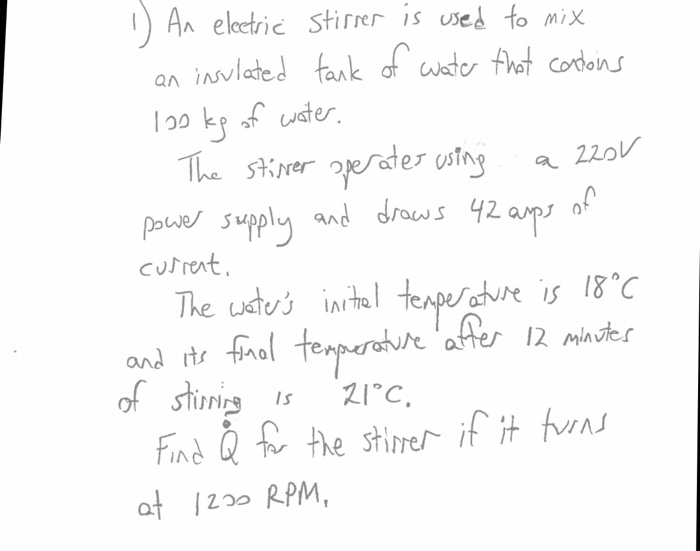 1) An electric stirrer is used to mix
an insulated tank of water that contains
100 kg of water.
The stirrer operates using a 220V
power supply and draws 42 amps of
current.
The water's initial temperature is 18°C
and its final temperature after 12 minutes
of stirring is 21°C.
Find Q̇ for the stirrer if it turns
at 1200 RPM.